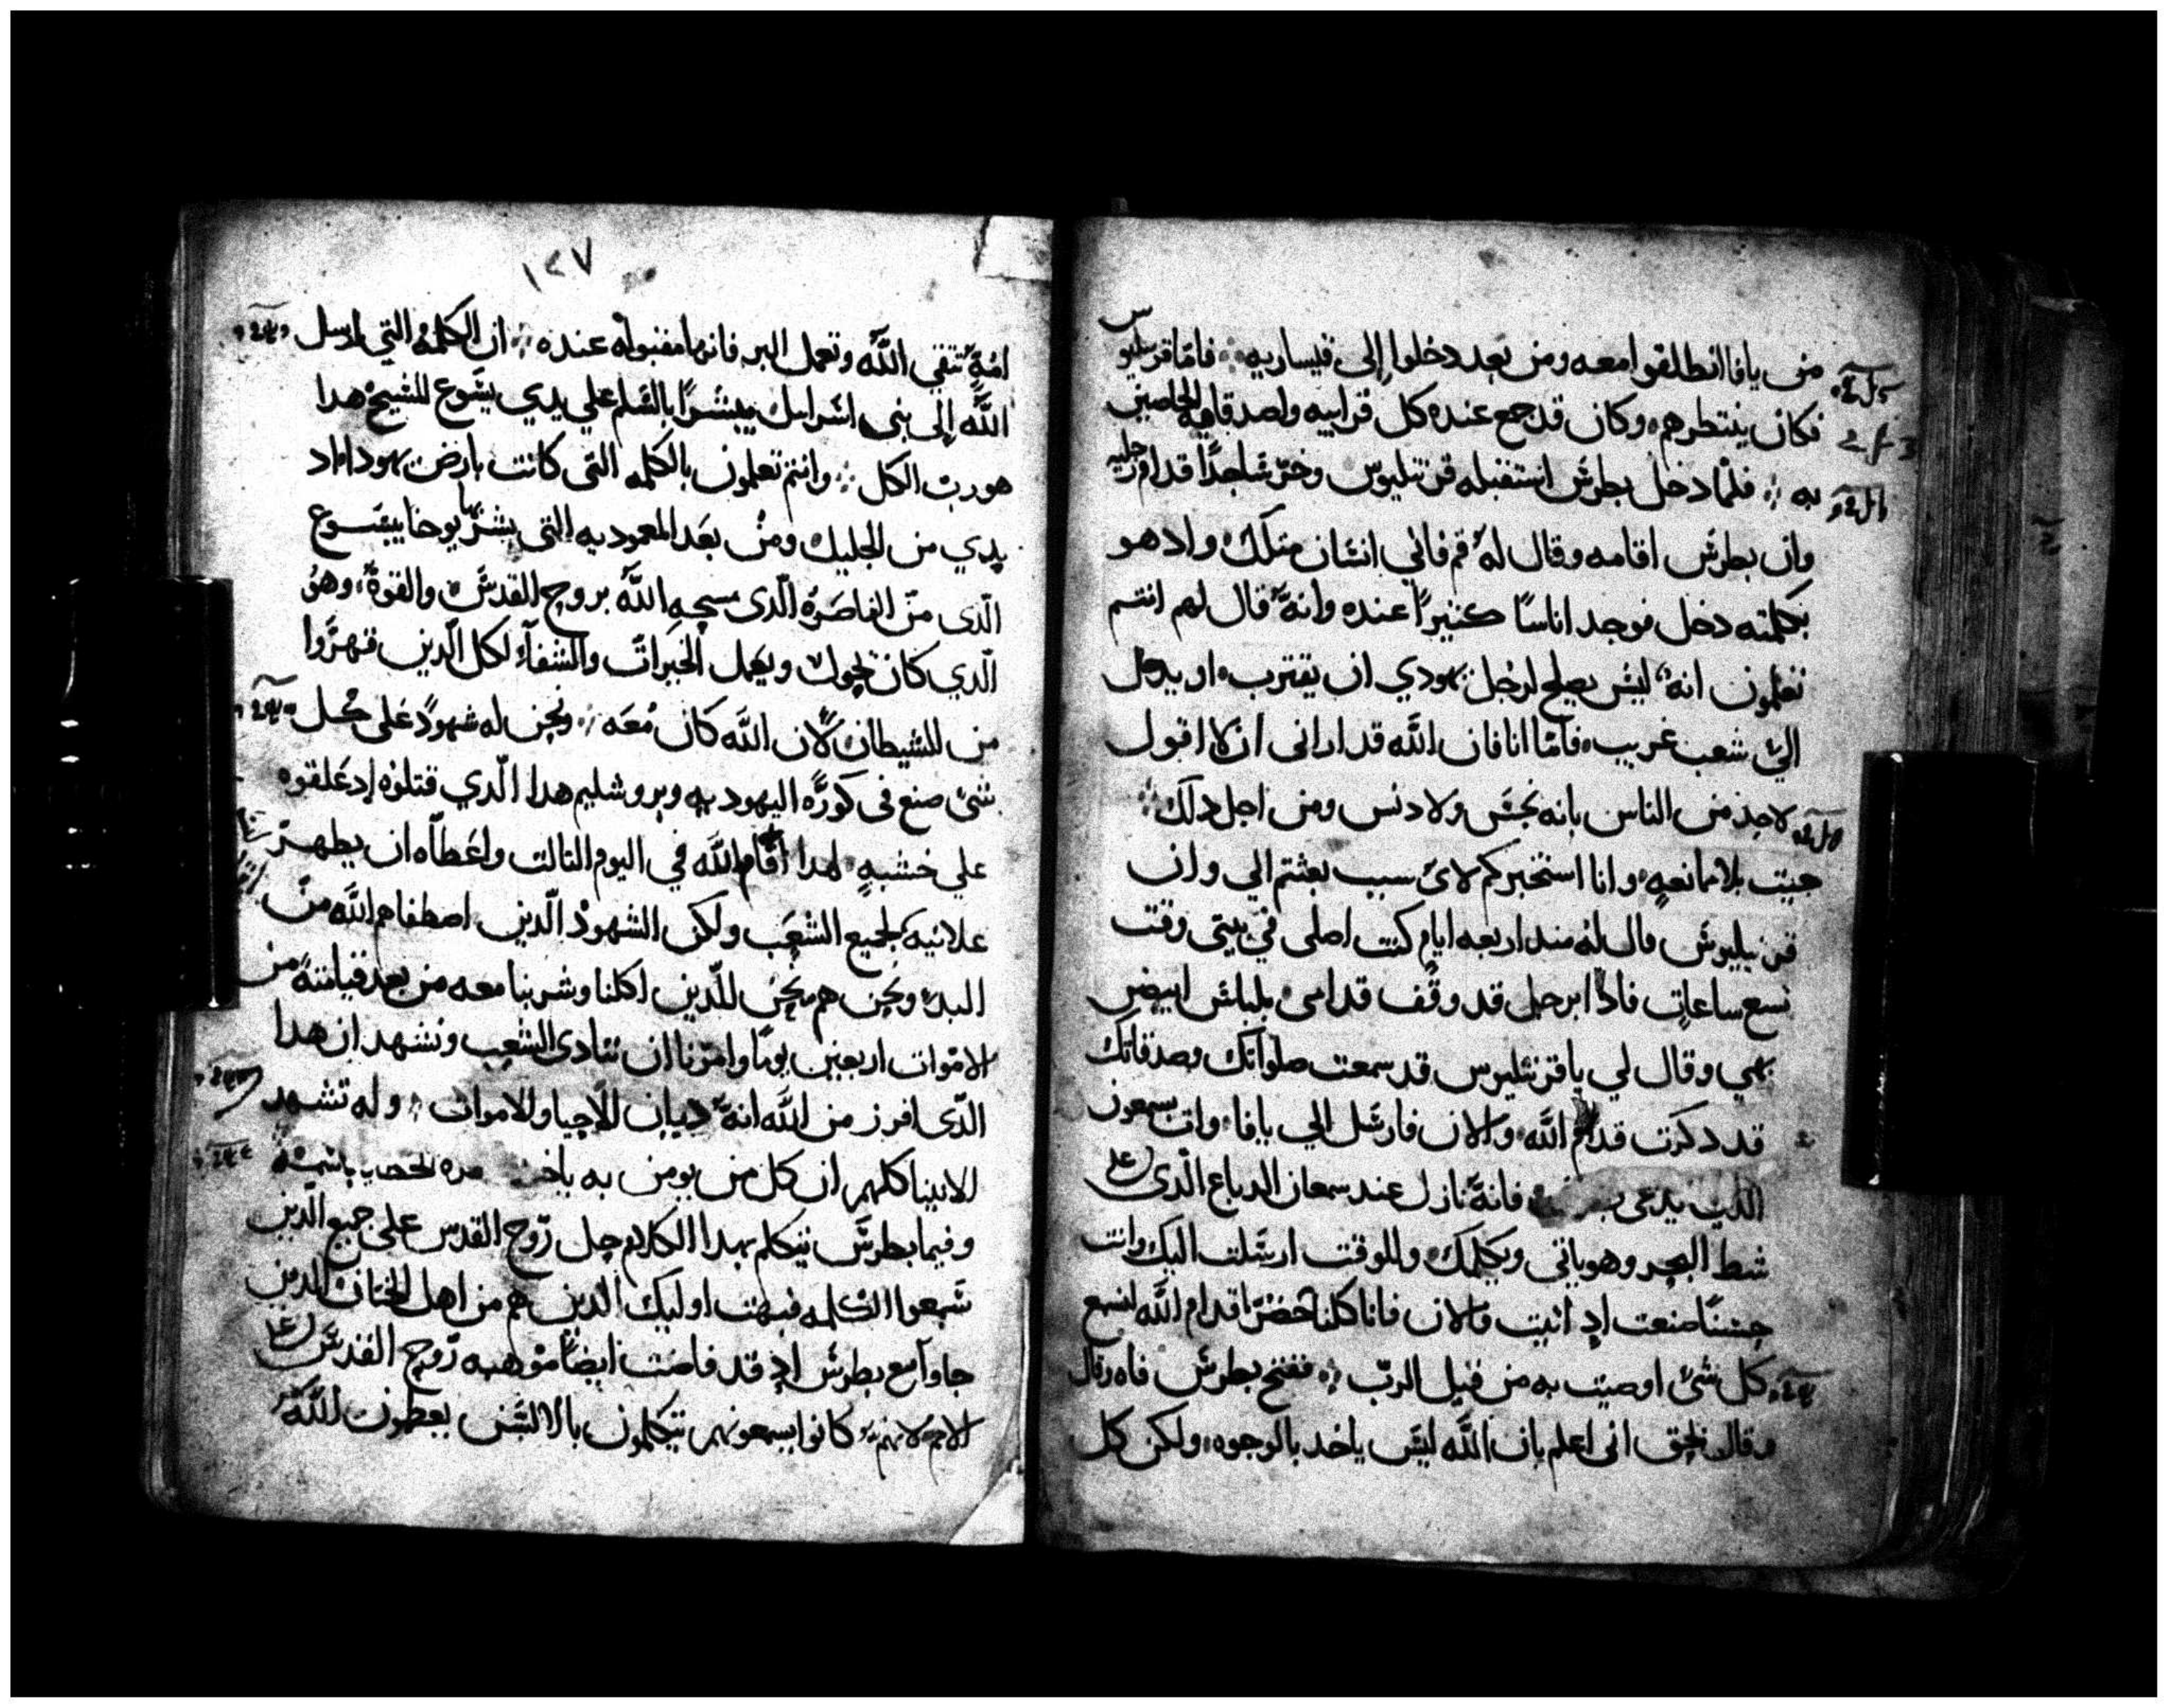 من يافا انطلقوا معه ومن بعد دخلوا إلى قيساريه فاما قرنيليوس
فكان ينتظرهم وكان قد جمع عنده كل قرابيه واصدقايه الخاصين
به فلما دخل بطرس استقبله قرنيليوس وخر ساجدًا قدام رجليه
وان بطرس اقامه وقال له قم فاني انسان متلك واد هو
يكلمه دخل فوجد اناسًا كثيرًا عنده وانه قال لهم انتم
تعلمون انه ليس يصلح لرجل يهودي ان يقترب او يدخل
الي شعب غريب فاما انا فان الله قد اراني ان لا اقول
لاحد من الناس بانه نجس ولا دنس ومن اجل دلك
جيت بلا ممانعه وانا استخبركم لاي سبب بعثتم الي وان
قرنيليوس قال له مند اربعه ايام كنت اصلي في بيتي وقت
تسع ساعات فادا برجل قد وقف قدامي بلباس ابيض
بهي وقال لي يا قرنيليوس قد سمعت صلواتك وصدقاتك
قد دكرت قدام الله والان فارسل الي يافا وات بسمعون
الذي يدعى فانه نازل عند سمعان الدباغ الذي علي
شط البحر وهو ياتي ويكلمك وللوقت ارسلت اليك وانت
حسنًا صنعت اد اتيت والان فانا كلنا حضرًا قدام الله لنسمع
كل شي اوصيت به من قبل الرب ففتح بطرس فاه وقال
وقال بحق اني اعلم بان الله ليس ياخد بالوجوه ولكن كل
١٢٧
امة تتقي الله وتعمل البر فانها مقبوله عنده ان الكلمة التي ارسل
الله إلى بني اسراييل يبشرًا بالسلم علي يدي يسوع المسيح هدا
هو رب الكل وانتم تعلمون بالكلمه التي كانت بارض يهودا اد
بدي من الجليل ومن بعد المعموديه التي بشر بها يوحنا بيسوع
الذي من الناصره الذي مسحه الله بروح القدس والقوة وهو
الذي كان يجول ويعمل الخيرات والشفاء لكل الذين قهروا
من الشيطان لان الله كان معه ونحن له شهودًا على كل
شي صنع في كورة اليهوديه ويروشليم هدا الذي قتلوه إد علقوه
علي خشبه لهدا أقام الله في اليوم التالت واعطاه ان يظهر
علانيه لجميع الشعب ولكن الشهود الذين اصطفاهم الله من
البدء ونحن هم نحن الذين اكلنا وشربنا معه من بعد قيامته من
الاموات اربعين يومًا وامرنا ان ننادي الشعب ونشهد ان هدا
الذي افرز من الله انه ديان الأحيا والاموات وله تشهد
الانبيا كلهم ان كل من يومن به باسمه
وفيما بطرس يتكلم بهدا الكلام حل روح القدس علي جميع الذين
سمعوا الكلمه فبهت اوليك الذين هم من اهل الختان الذين
جاوا مع بطرس اد قد فاضت ايضًا موهبه روح القدس علي
الامم لانهم كانوا يسمعونهم يتكلمون بالالسن يعظمون الله